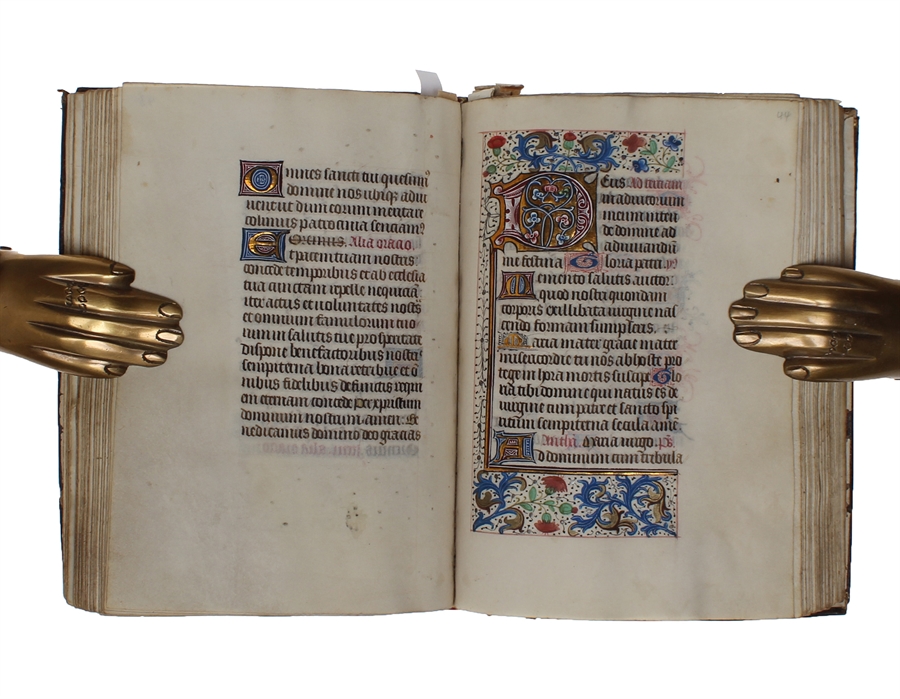 Omnes sancti tui quesumus
domine nos ubiqȝ adiu
uent ut dum eorum merita re
colimus patrocinia sentiamꝰ
Oremus. Alia oratio.
Et pacem tuam nostris
concede temporibus et ab ecclesia
tua cunctam repelle nequiciā
iter actus et uoluntates nostras
et omnium famulorum tuo
rum in salutis tue prosperitate
dispone benefactoribus nostris
sempiterna bona retribue et o
nibus fidelibus defunctis requi
em eternam concede Per xpristum
dominum nostrum amen. Be
nedicamus domino deo gracias
99
Deus Ad tertiam
in adiutorium
meum inten
de domine ad
adiuuandū
me festina Gloria patri.
Memento salutis auctor
quod nostri quondam
corporis ex illibata uirgine nas
cendo formam sumpseris.
Maria mater gracie mater
misericordie tu nos ab hoste pro
tege in hora mortis suscipe Glo
ria tibi domine qui natus es de
uirgine cum patre et sancto spi
ritu in sempiterna secula amē
Anthi. Maria uirgo. p̄s
Ad dominum cum tribula